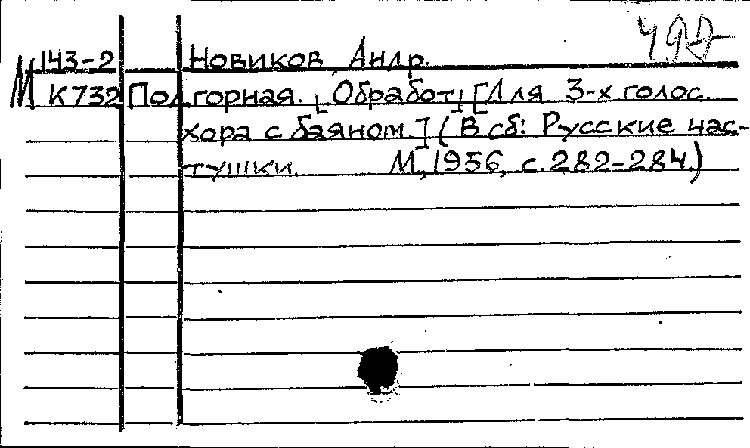 143-2 Новиков, Андр.
М К732 Подгорная. [Обработ] [Для 3-х голос.
хора с баяном.] (В сб: Русские час-
тушки. М, 1956, с. 282-284.)